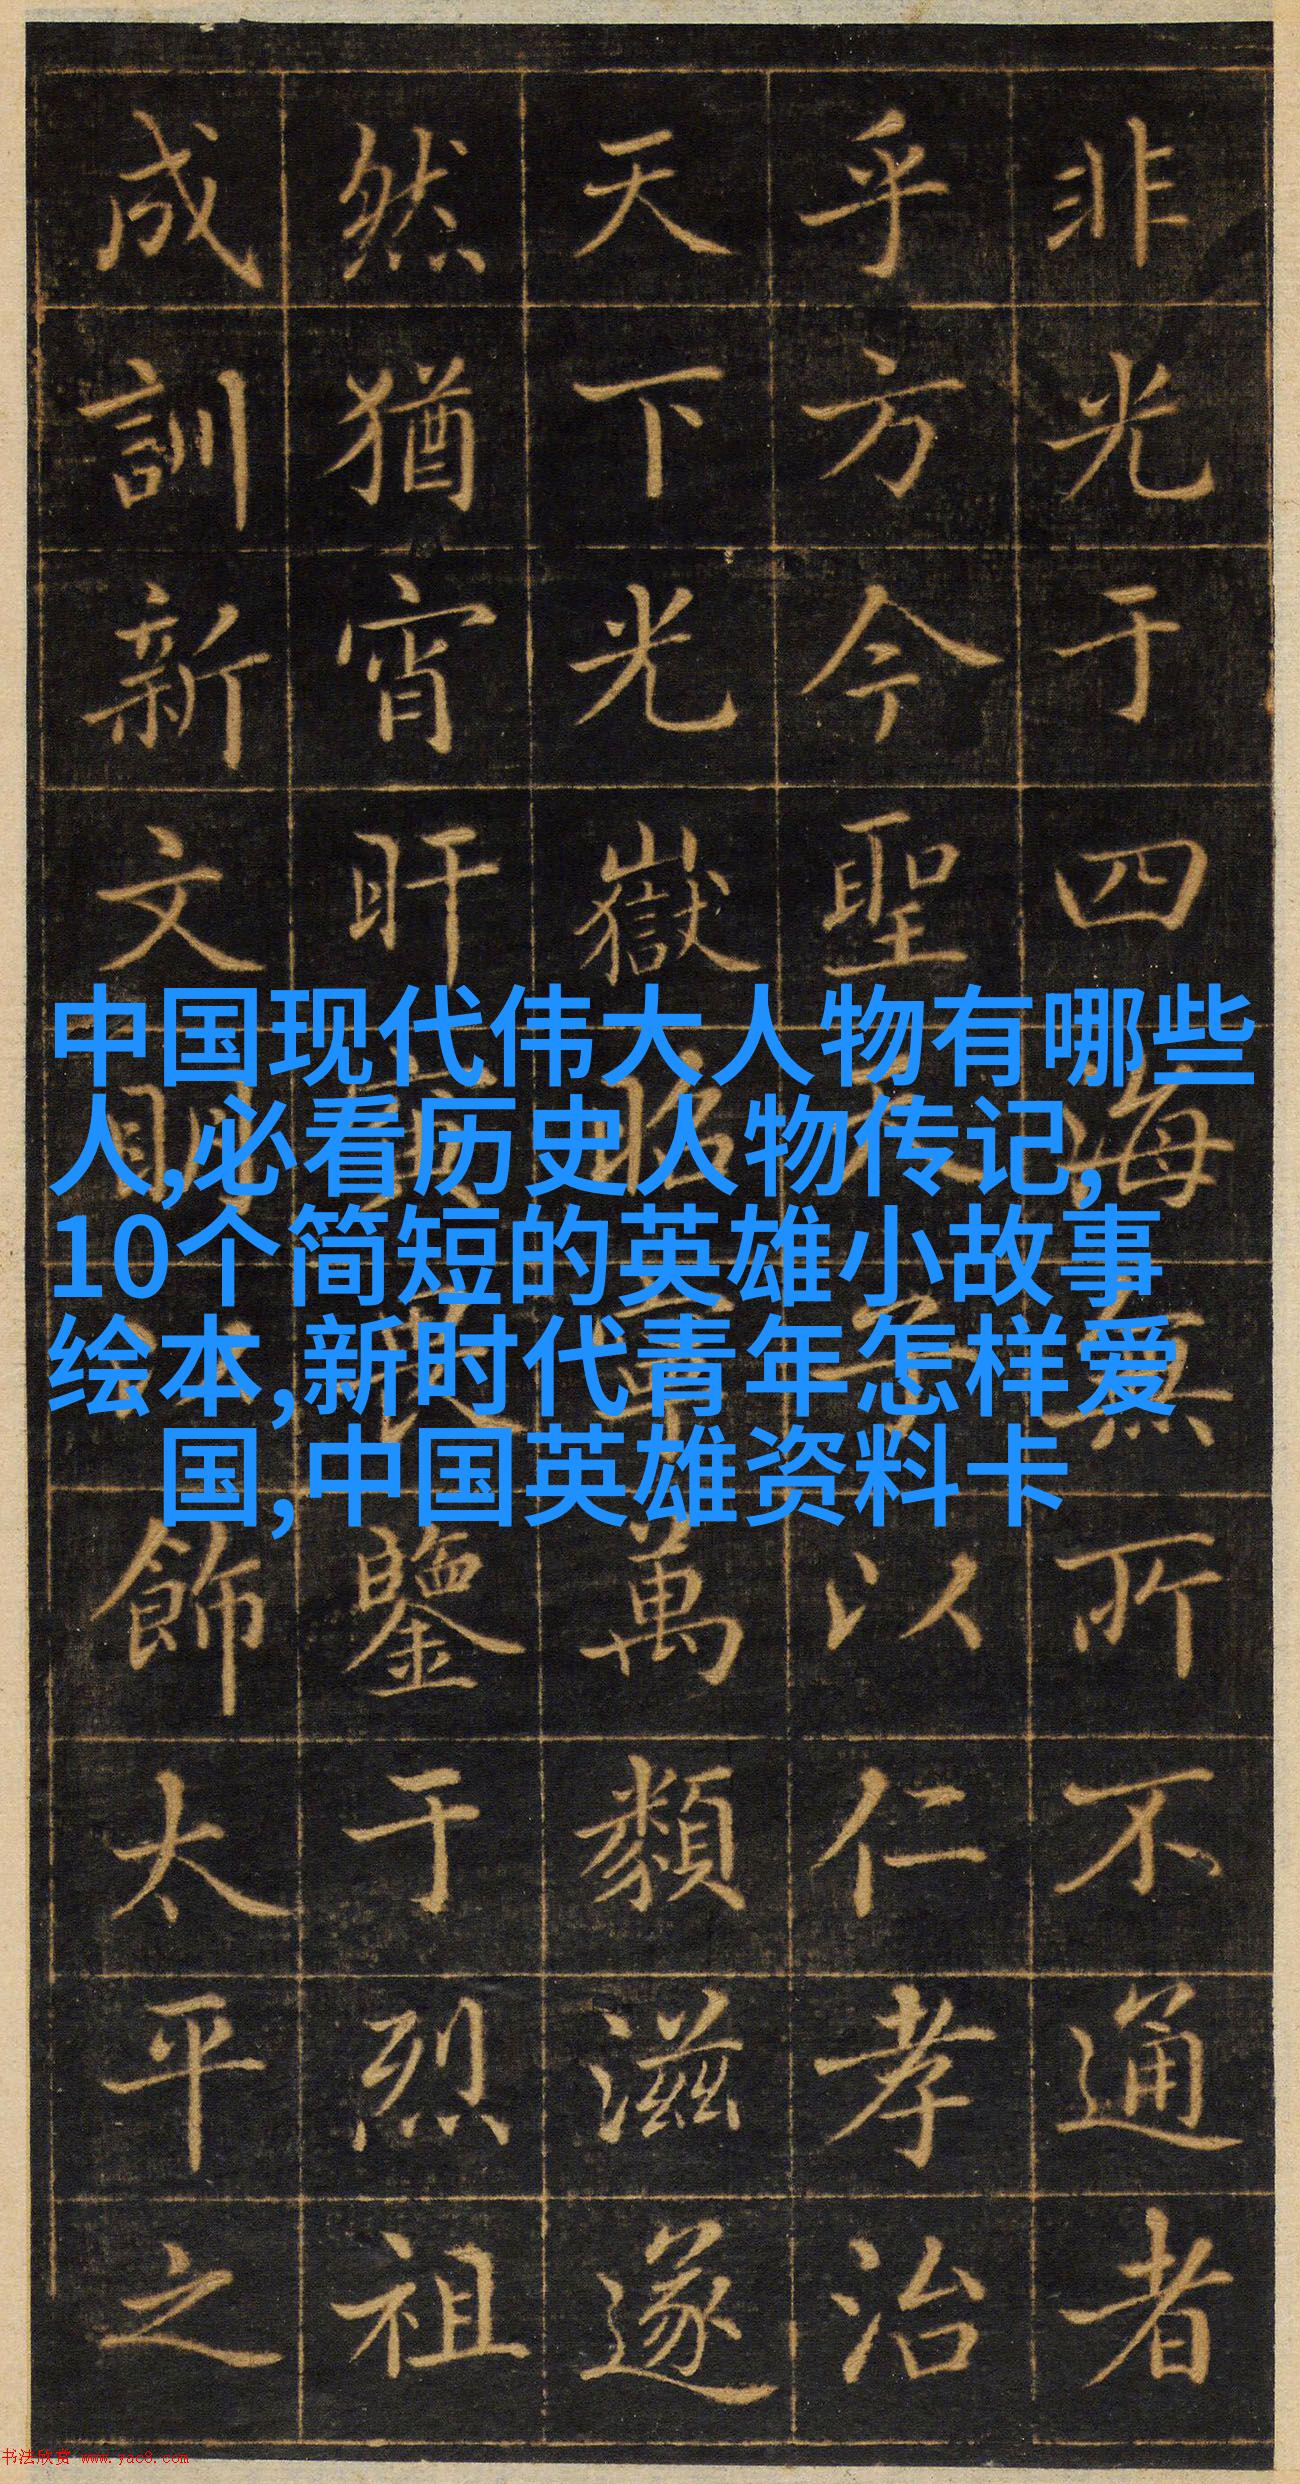 非光于四海無所不通者
乎方今聖以仁孝治
天下光嶽昭萬類滋遂
然猶宵旰寅畏鑒于烈祖
成訓新文明飾太平之
中国现代伟大人物有哪些
人,必看历史人物传记,
10个简短的英雄小故事
绘本,新时代青年怎样爱
国,中国英雄资料卡
书法欣赏 www.yac8.com